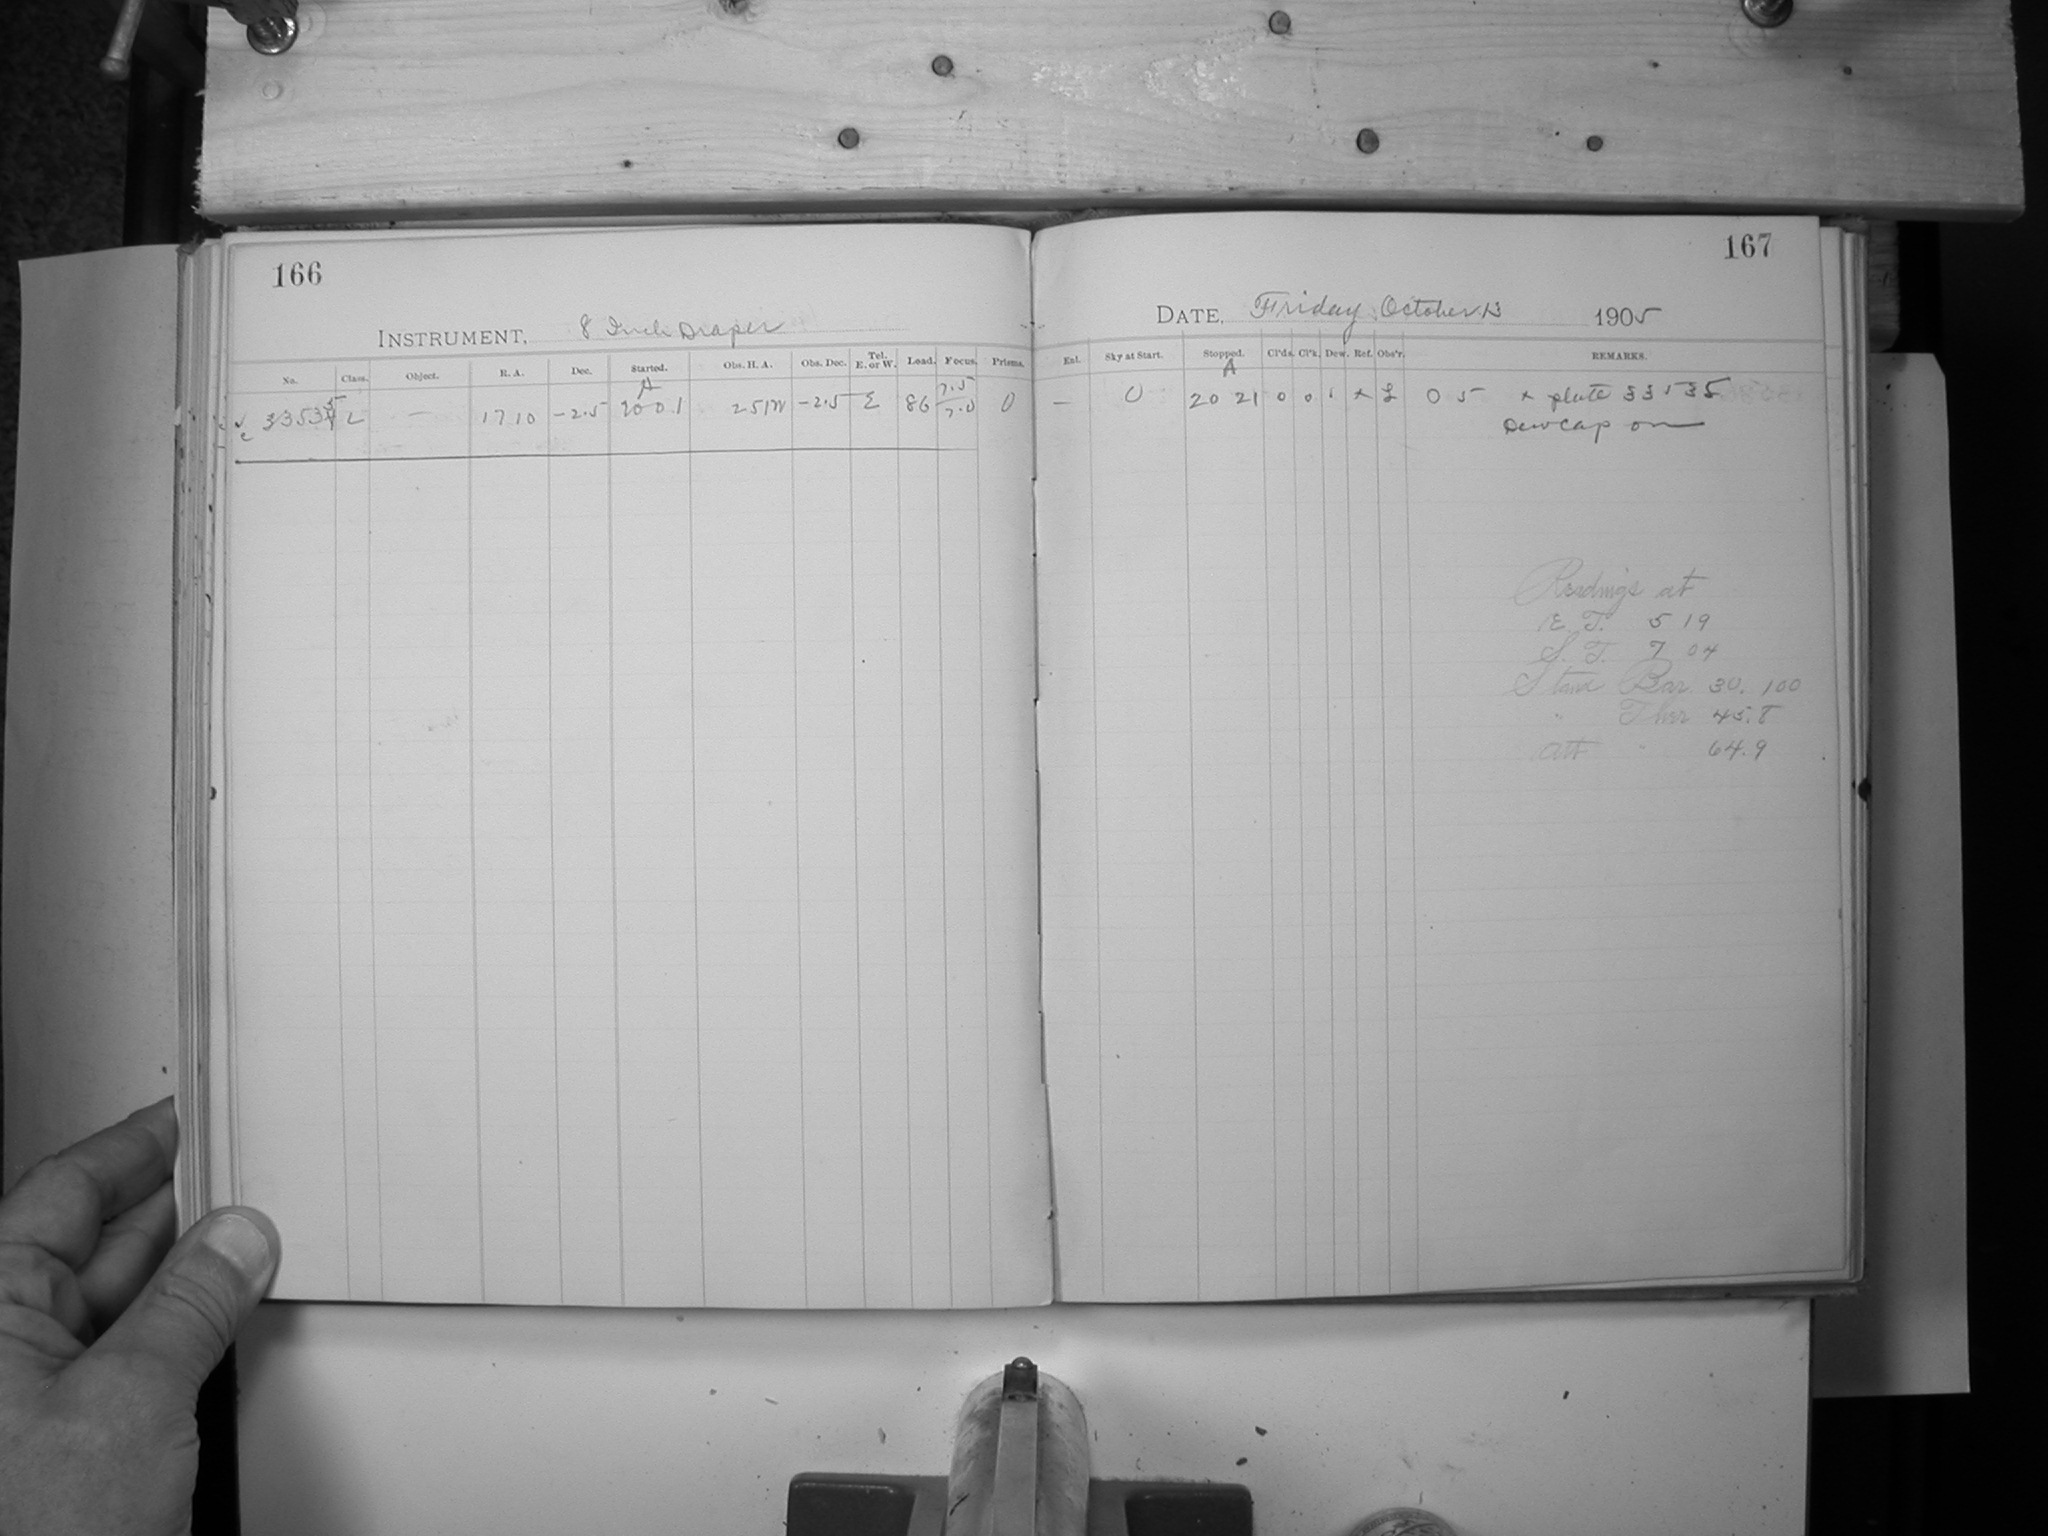 166
INSTRUMENT, 8 Inch Draper
No. Class. Object. R. A. Dec. Started. Obs. H. A. Obs. Dec. Tel. E. or W. Load. Focus. Prisms.
A
33535 L — 17 10 -2.5 20 01 2 51 W -2.5 E 86 7.5 7.0 0
167
DATE, Friday October 13 1905
Ent. Sky at Start. Stopped. Cl'ds. Cl'k. Dew. Ref. Obs'r. REMARKS.
A
— 0 20 21 0 0 1 x L 0 5 x plate 33535
Dewcap on
Readings at
E. T. 5 19
S. T. 7 04
Stand Bar. 30.100
" Ther 45.8
att " 64.9